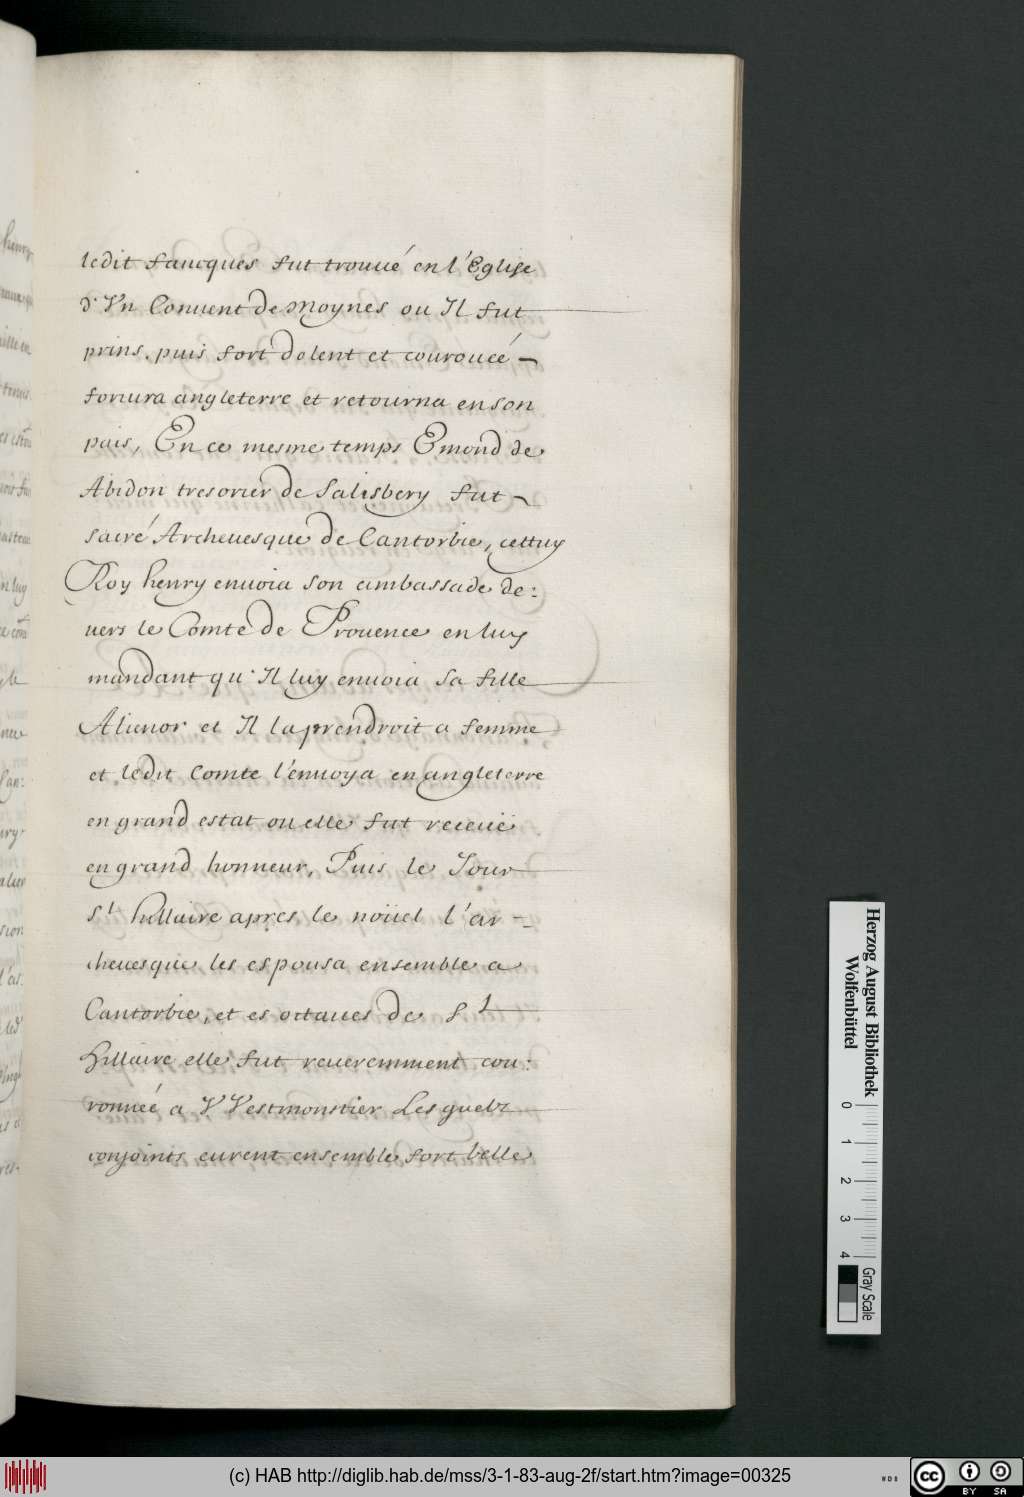 ledit faucques fut trouué en l'Eglise
d'Vn Conuent de moynes ou Il fut
prins. puis fort dolent et couroucé
foriura angleterre et retourna en son
pais, En ce mesme temps Emond de
Abidon tresorier de Salisbery fut
sacré Archeuesque de Cantorbie, cettuy
Roy henry enuoia son ambassade de:
uers le Comte de Prouence en luy
mandant qu'Il luy enuoia sa fille
Alienor et Il la prendroit a femme
et ledit Comte l'enuoya en angleterre
en grand estat ou elle fut receuë
en grand honneur, Puis le Jour
St hillaire apres le noüel l'ar-
cheuesque les espousa ensemble a
Cantorbie, et es octaues de St
Hillaire elle fut reueremment cou:
ronneé a VVestmonstier Lesquelz
conjoints eurent ensemble fort belle
Herzog August Bibliothek
Wolfenbüttel
0 1 2 3 4
Gray Scale
(c) HAB http://diglib.hab.de/mss/3-1-83-aug-2f/start.htm?image=00325
WDB
cc BY SA